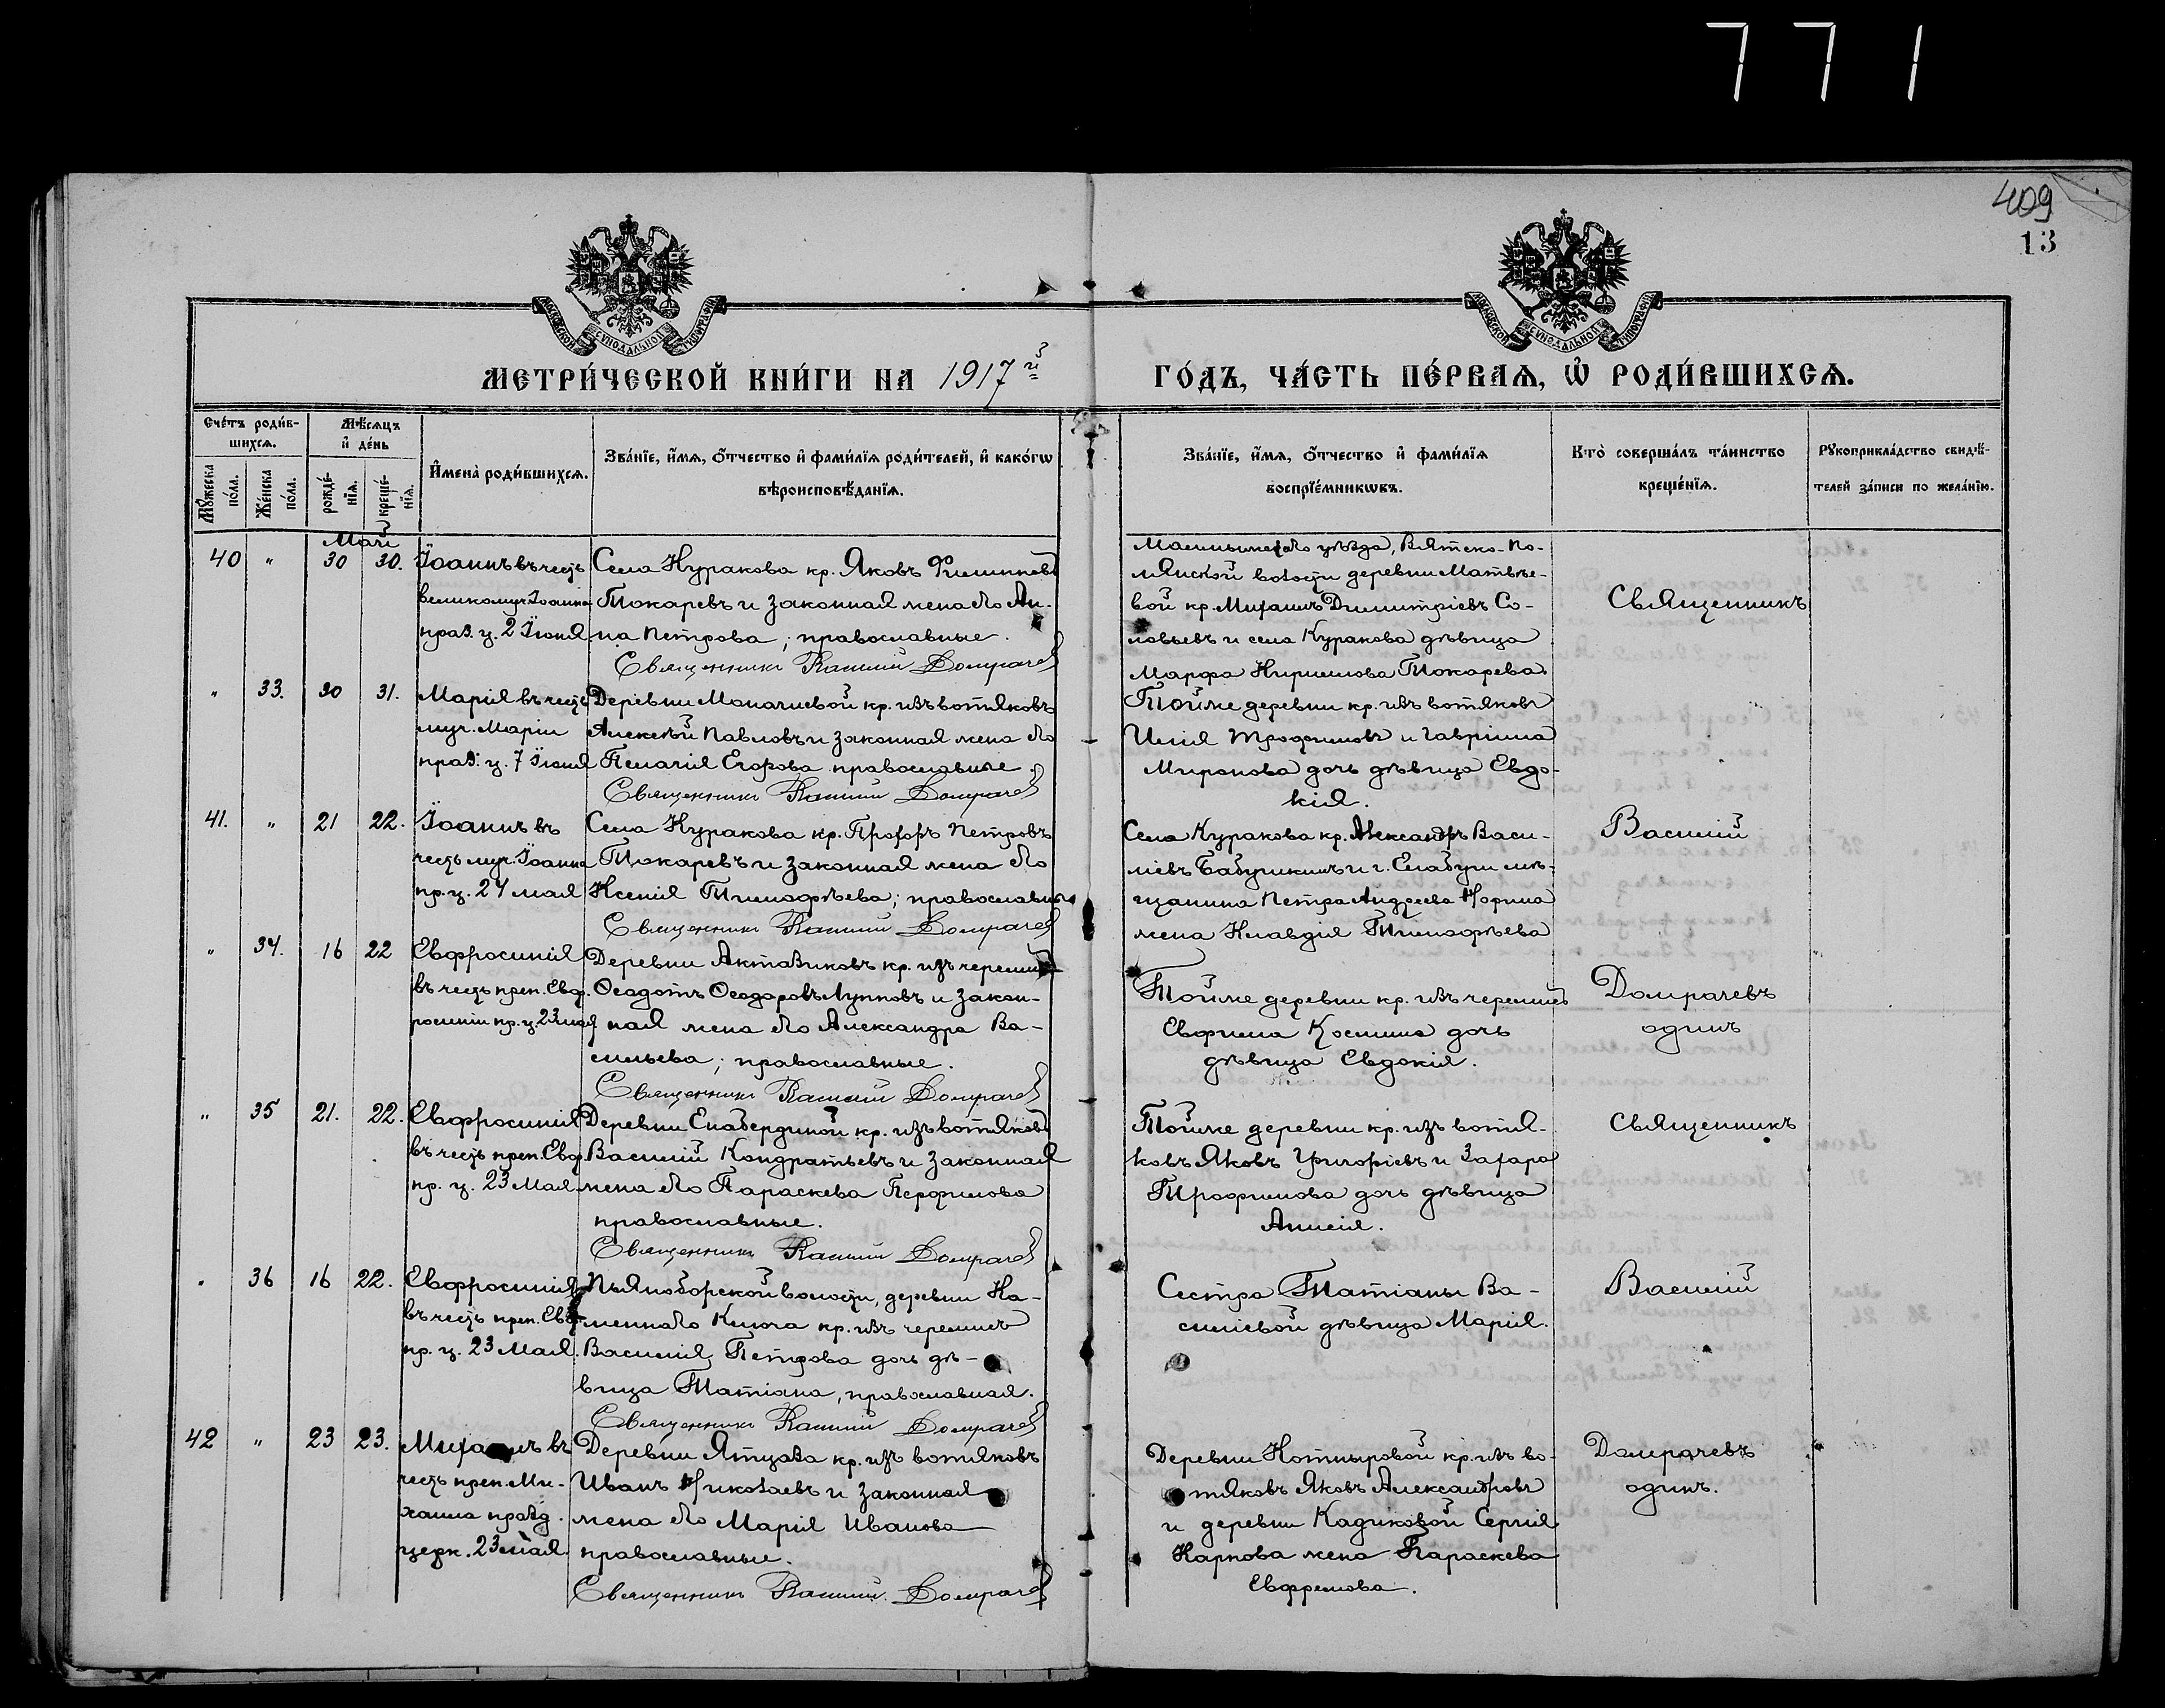 771
409
13
МОСКОВСКОЙ СѴНОДАЛЬНОЙ ТИПОГРАФІИ
МОСКОВСКОЙ СѴНОДАЛЬНОЙ ТИПОГРАФІИ
МЕТРИ́ЧЕСКОЙ КНИ́ГИ НА 1917й ГО́ДЪ, ЧА́СТЬ ПЕ́РВАѦ, Ѡ҆ РОДИ́ВШИХСѦ.
Сче́тъ роди́в-
шихсѧ.
Мѣ́сѧцъ
и҆ де́нь
Мꙋ́жеска по́ла.
Же́нска по́ла.
рожде́-
нїѧ.
креще́-
нїѧ.
И҆мена̀ роди́вшихсѧ.
Зва́нїе, и҆́мѧ, ѻ҆́тчество и҆ фами́лїѧ роди́телей, и҆ како́гѡ
вѣроисповѣ́данїѧ.
Зва́нїе, и҆́мѧ, ѻ҆́тчество и҆ фами́лїѧ
воспрїе́мникѡвъ.
Кто̀ соверша́лъ та́инство
креще́нїѧ.
Рꙋкоприкла́дство свидѣ́-
телей за́писи по жела́нїю.
Май
40 " 30 30.
Іоаннъ въ честь
великомуч. Іоанна
празд. ц. 2 Іюня
Села Куракова кр. Яковъ Филипповъ
Токаревъ и законная жена его Ан-
на Петрова; православные.
Священникъ Василій Домрачевъ
Малмыжскаго уѣзда, Вятско-По-
лянской волости деревни Матвѣе-
вой кр. Михаилъ Димитріевъ Со-
ловьевъ и села Куракова дѣвица
Марфа Кирилова Токарева
Священникъ
" 33. 30 31.
Марія въ честь
муч. Маріи
празд. ц. 7 Іюня
Деревни Мопачиевой кр. изъ вотяковъ
Алексѣй Павловъ и законная жена его
Пелагія Егорова православные.
Священникъ Василій Домрачевъ
Той же деревни кр. изъ вотяковъ
Илія Трофимовъ и Гавріила
Миронова дочь дѣвица Евдо-
кія.
41. " 21 22.
Іоаннъ въ
честь муч. Іоанна
пр. ц. 24 мая
Села Куракова кр. Прохоръ Петровъ
Токаревъ и законная жена его
Ксенія Тимофѣева; православные
Священникъ Василій Домрачевъ
Села Куракова кр. Александръ Васи-
ліевъ Бабушкинъ и г. Елабуги мѣ-
щанина Петра Андреева
жена Клавдія Тимофѣева
Василій
" 34. 16 22
Евфросинія
въ честь преп. Евф-
росиніи пр. ц. 23 мая
Деревни Актазиковъ кр. изъ черемисъ
Ѳеодотъ Ѳеодоровъ Лупповъ и закон-
ная жена его Александра Ва-
сильева; православные.
Священникъ Василій Домрачевъ
Той же деревни кр. изъ черемисъ
Евфима Космина дочь
дѣвица Евдокія.
Домрачевъ
одинъ
" 35 21. 22.
Евфросинія
въ честь преп. Евф.
пр. ц. 23 Мая
Деревни Енабердиной кр. изъ вотяковъ
Василій Кондратьевъ и законная
жена его Параскева Перфилова
православные.
Священникъ Василій Домрачевъ
Той же деревни кр. изъ вотя-
ковъ Яковъ Григоріевъ и Захара
Трофимова дочь дѣвица
Анисія.
Священникъ
" 36 16 22.
Евфросинія
въ честь преп. Евф.
пр. ц. 23 Мая.
Пьяноборской волости, деревни Ка-
меннаго Ключа кр. изъ черемисъ
Василія Петрова дочь дѣ-
вица Татіана, православная.
Священникъ Василій Домрачевъ
Сестра Татіаны Ва-
силіевой дѣвица Марія.
Василій
42 " 23 23.
Михаилъ въ
честь преп. Ми-
хаила празд.
церк. 23 мая
Деревни Ятцаза кр. изъ вотяковъ
Иванъ Николаевъ и законная
жена его Марія Иванова
православные.
Священникъ Василій Домрачевъ
Деревни Котныровой кр. изъ во-
тяковъ Яковъ Александровъ
и деревни Кадиковой Сергія
Карпова жена Параскева
Евфремова.
Домрачевъ
одинъ.